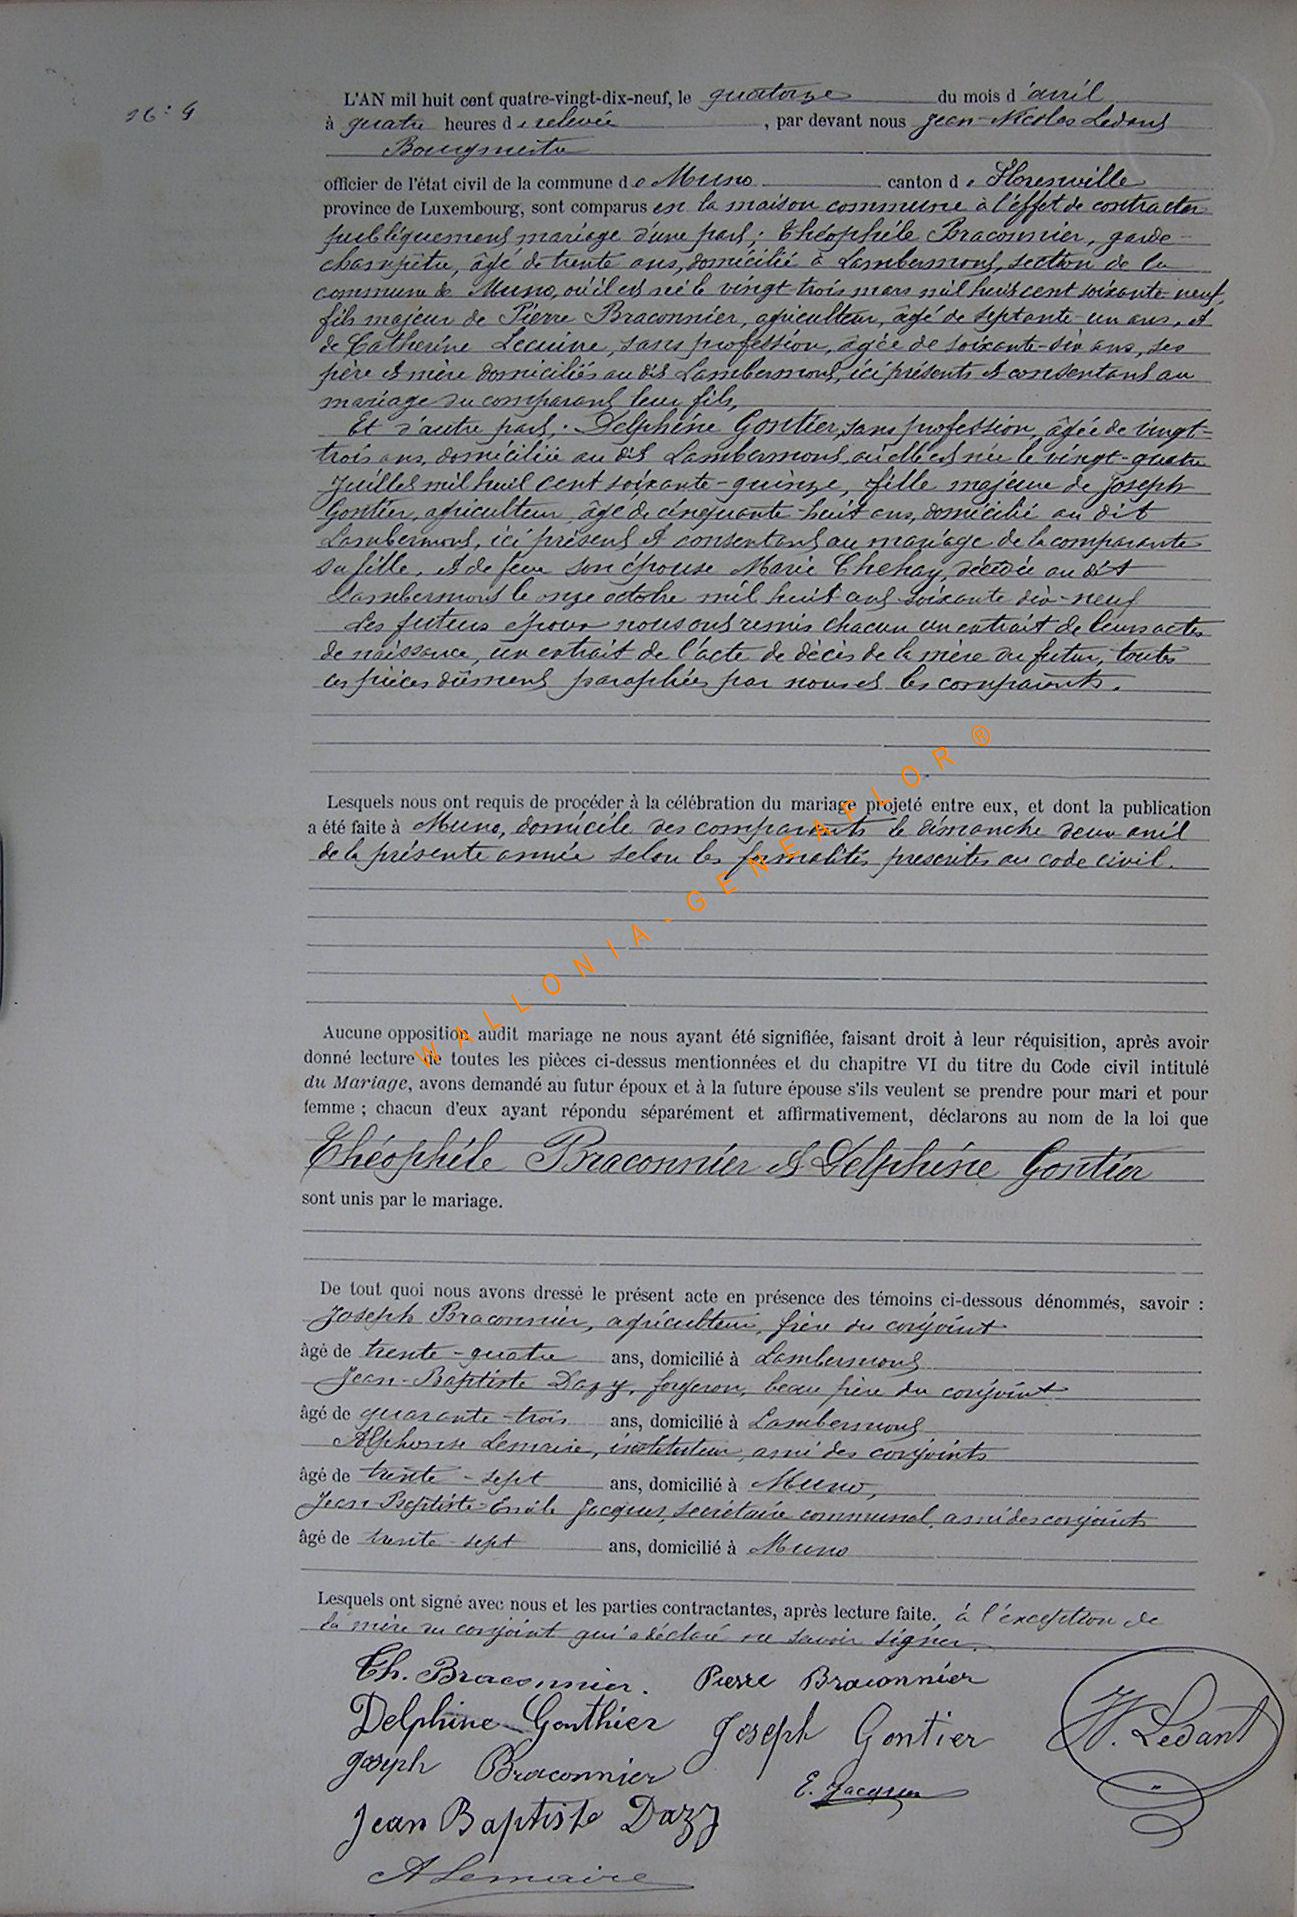 16 : 9
L'AN mil huit cent quatre-vingt-dix-neuf, le quatorze du mois d'avril
à quatre heures de relevée, par devant nous Jean-Nicolas Ledant
Bourgmestre
officier de l'état civil de la commune de Muno canton de Florenville
province de Luxembourg, sont comparus en la maison commune à l'effet de contracter
publiquement mariage d'une part; Théophile Braconnier, garde-
champêtre, âgé de trente ans, domicilié à Lambermont, section de la
commune de Muno, où il est né le vingt-trois mars mil huit cent soixante-neuf,
fils majeur de Pierre Braconnier, agriculteur, âgé de septante-un ans, et
de Catherine Lecuine, sans profession, âgée de soixante-six ans, ses
père et mère domiciliés au dit Lambermont, ici présents et consentant au
mariage du comparant leur fils,
Et d'autre part; Delphine Gontier, sans profession, âgée de vingt-
trois ans, domiciliée au dit Lambermont, où elle est née le vingt-quatre
Juillet mil huit cent soixante-quinze, fille majeure de Joseph
Gontier, agriculteur, âgé de cinquante-huit ans, domicilié au dit
Lambermont, ici présent et consentant au mariage de la comparante
sa fille, et de feue son épouse Marie Chehay, décédée au dit
Lambermont le onze octobre mil huit cent soixante dix-neuf
Les futurs époux nous ont remis chacun un extrait de leurs actes
de naissance, un extrait de l'acte de décès de la mère du futur, toutes
ces pièces dûment paraphées par nous et les comparants.
Lesquels nous ont requis de procéder à la célébration du mariage projeté entre eux, et dont la publication
a été faite à Muno, domicile des comparants le dimanche deux avril
de la présente année selon les formalités prescrites au code civil.
Aucune opposition audit mariage ne nous ayant été signifiée, faisant droit à leur réquisition, après avoir
donné lecture de toutes les pièces ci-dessus mentionnées et du chapitre VI du titre du Code civil intitulé
du Mariage, avons demandé au futur époux et à la future épouse s'ils veulent se prendre pour mari et pour
femme ; chacun d'eux ayant répondu séparément et affirmativement, déclarons au nom de la loi que
Théophile Braconnier et Delphine Gontier
sont unis par le mariage.
De tout quoi nous avons dressé le présent acte en présence des témoins ci-dessous dénommés, savoir :
Joseph Braconnier, agriculteur, frère du conjoint
âgé de trente-quatre ans, domicilié à Lambermont
Jean-Baptiste Dazy, forgeron, beau frère du conjoint
âgé de quarante-trois ans, domicilié à Lambermont
Alphonse Lemaire, instituteur, ami des conjoints
âgé de trente-sept ans, domicilié à Muno,
Jean-Baptiste-Emile Jacques, secrétaire communal, ami des conjoints
âgé de trente-sept ans, domicilié à Muno
Lesquels ont signé avec nous et les parties contractantes, après lecture faite, à l'exception de
la mère du conjoint qui a déclaré ne savoir signer.
Th. Braconnier. Pierre Braconnier
Delphine Gonthier Joseph Gontier
Joseph Braconnier E. Jacques
Jean Baptiste Dazy
A Lemaire
Ledant
WALLONIA-GENEAFLOR ®